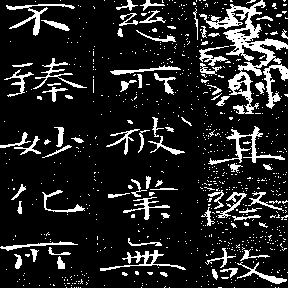 其際故
慈所被業無
不臻妙化所